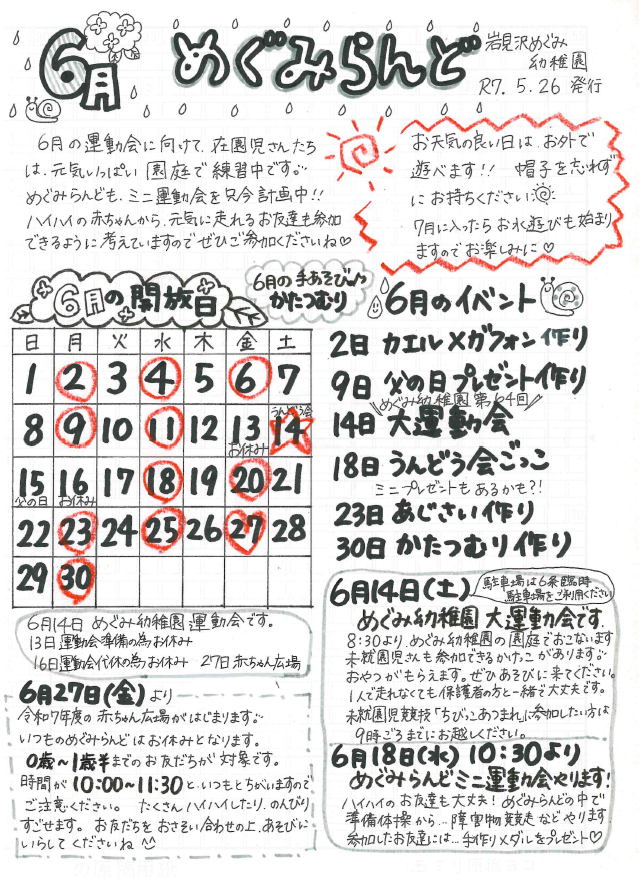 6月
めぐみらんど
岩見沢めぐみ
幼稚園
R7.5.26 発行
6月の運動会に向けて、在園児さんたち
は、元気いっぱい園庭で練習中です♪
めぐみらんども、ミニ運動会を只今計画中!!
ハイハイの赤ちゃんから、元気に走れるお友達も参加
できるように考えていますのでぜひご参加くださいね♡
お天気の良い日は、お外で
遊べます!! 帽子を忘れず
にお持ちください
7月に入ったらお水遊びも始まり
ますのでお楽しみに♡
6月の開放日
6月の手あそび♪
かたつむり
日 月 火 水 木 金 土
1 2 3 4 5 6 7
うんどう会
8 9 10 11 12 13 14
お休み
15 16 17 18 19 20 21
父の日 お休み
22 23 24 25 26 27 28
29 30
6月14日 めぐみ幼稚園運動会です。
13日運動会準備の為お休み
16日運動会代休の為お休み 27日赤ちゃん広場
6月27日(金)より
令和7年度の赤ちゃん広場がはじまります♪
いつものめぐみらんどはお休みとなります。
0歳〜1歳半までのお友だちが対象です。
時間が10:00〜11:30と、いつもとちがいますので
ご注意ください。 たくさんハイハイしたり、のんびり
すごせます。 お友だちをおさそい合わせの上、あそびに
いらしてくださいね
6月のイベント
2日 カエルメガフォン作り
9日 父の日プレゼント作り
めぐみ幼稚園第64回
14日 大運動会
18日 うんどう会ごっこ
ミニプレゼントもあるかも?!
23日 あじさい作り
30日 かたつむり作り
6月14日(土)
駐車場は6条臨時
駐車場をご利用ください
めぐみ幼稚園 大運動会です
8:30より、めぐみ幼稚園の園庭でおこないます
未就園児さんも参加できるかけっこがあります♪
おやつがもらえます。ぜひあそびに来てください。
1人で走れなくても保護者の方と一緒で大丈夫です。
未就園児競技「ちびっこあつまれ」に参加したい方は
9時ごろまでにお越しください。
6月18日(水) 10:30より
めぐみらんどミニ運動会やります!
ハイハイのお友達も大丈夫! めぐみらんどの中で
準備体操から…障害物競走などやります
参加したお友達には…手作りメダルをプレゼント♡